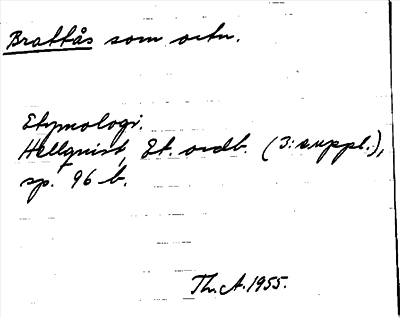 Brattås som ortn.
Etymologi.
Hellquist, Et. ordb. (3: suppl.),
sp. 96 b.
Th. A. 1955.